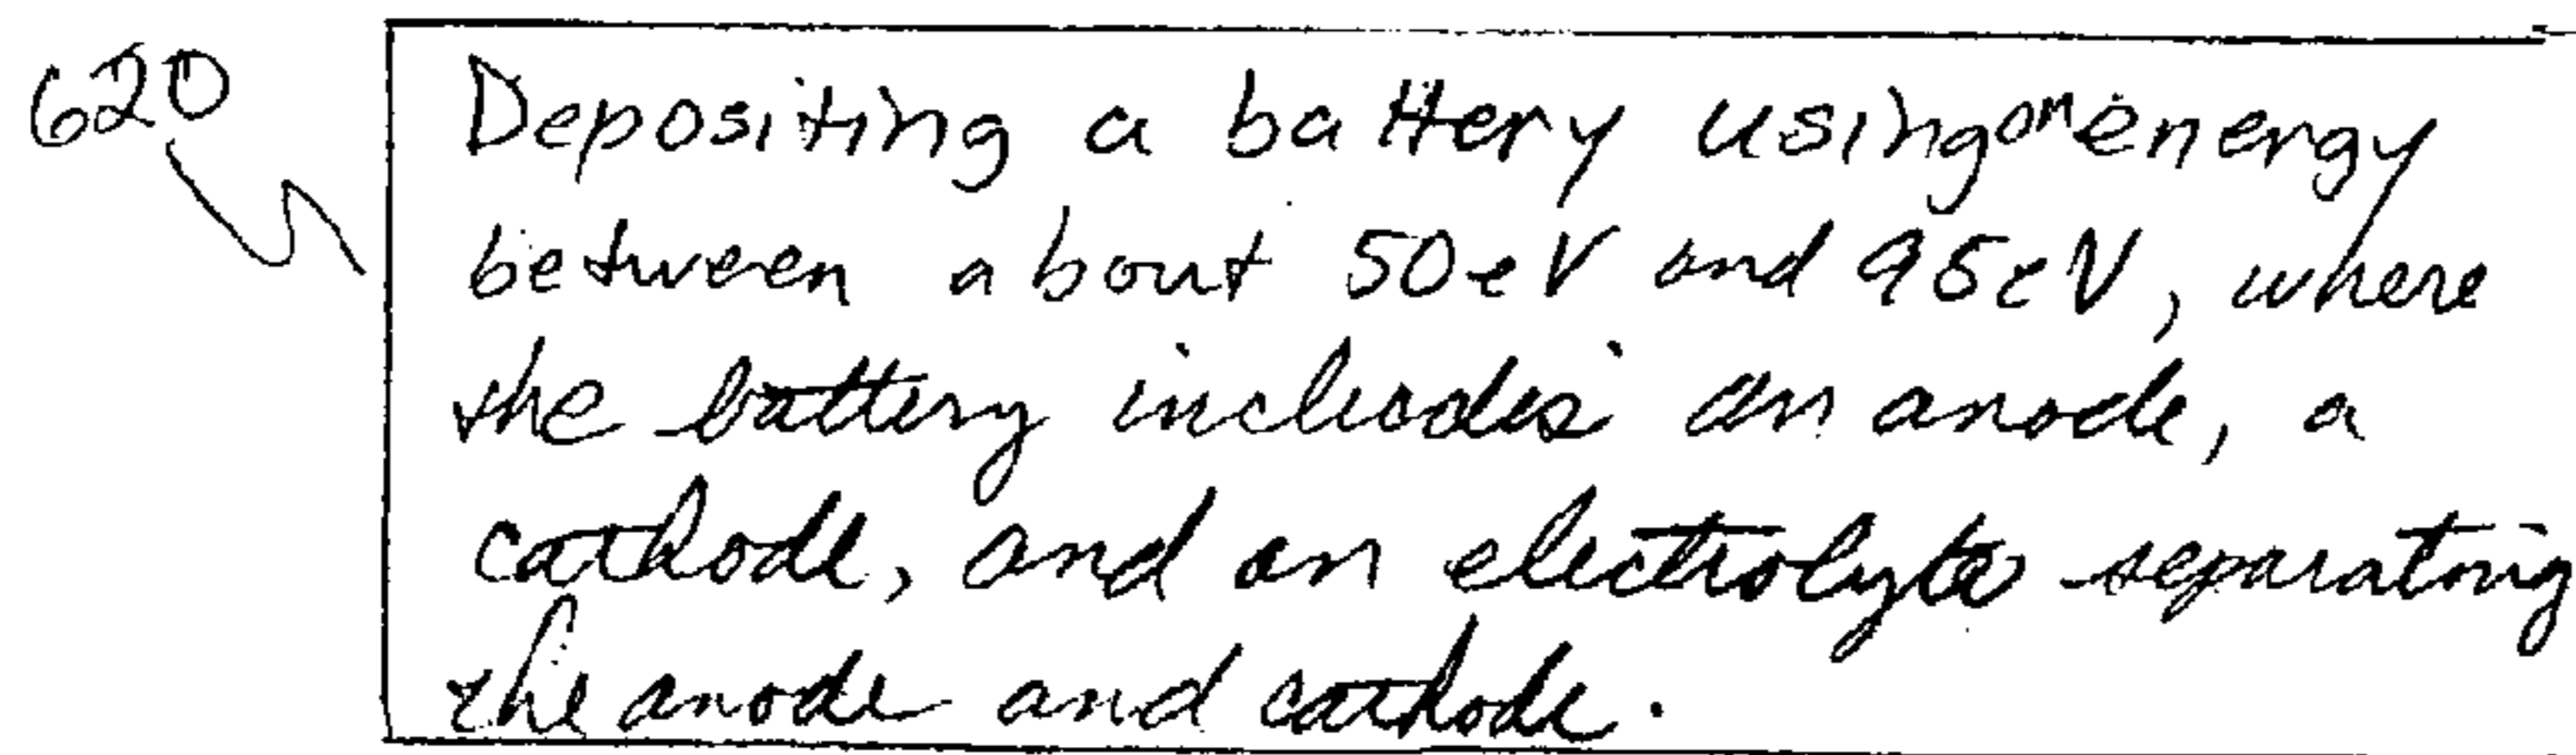 620
Depositing a battery using an energy
between about 50eV and 95eV, where
the battery includes an anode, a
cathode, and an electrolyte separating
the anode and cathode.